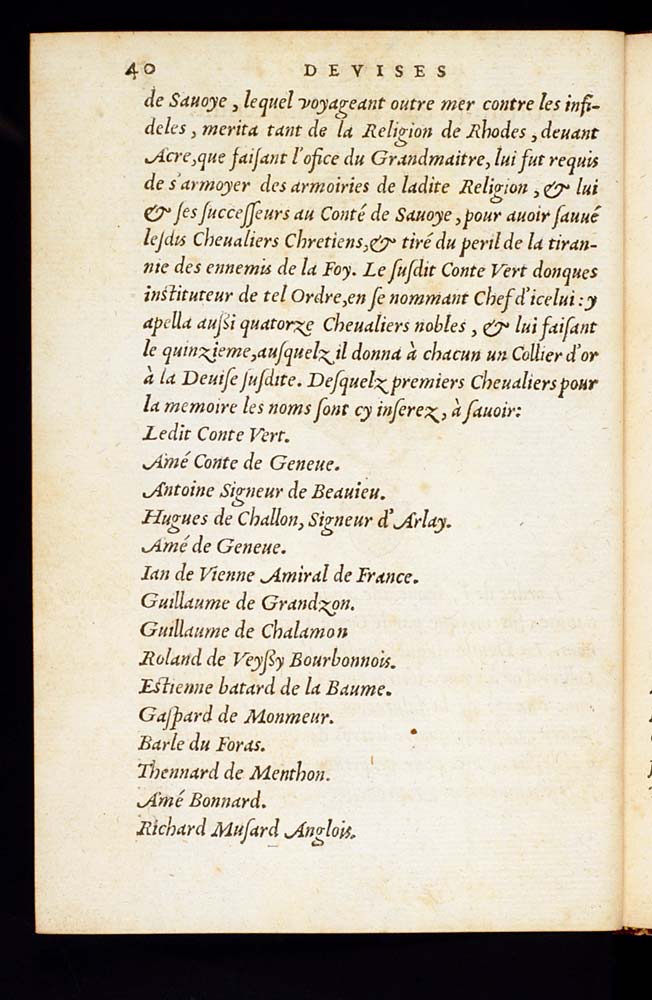 40 DEVISES
de Sauoye, lequel voyageant outre mer contre les infi-
deles, merita tant de la Religion de Rhodes, deuant
Acre, que faiſant l'ofice du Grandmaitre, lui fut requis
de s'armoyer des armoiries de ladite Religion, & lui
& ſes ſucceſſeurs au Conté de Sauoye, pour auoir ſauué
leſdis Cheualiers Chretiens, & tiré du peril de la tiran-
nie des ennemis de la Foy. Le ſuſdit Conte Vert donques
inſtituteur de tel Ordre, en ſe nommant Chef d'icelui: y
apella außi quatorze Cheualiers nobles, & lui faiſant
le quinzieme, auſquelz il donna à chacun un Collier d'or
à la Deuiſe ſuſdite. Deſquelz premiers Cheualiers pour
la memoire les noms ſont cy inſerez, à ſauoir:
Ledit Conte Vert.
Amé Conte de Geneue.
Antoine Signeur de Beauieu.
Hugues de Challon, Signeur d'Arlay.
Amé de Geneue.
Ian de Vienne Amiral de France.
Guillaume de Grandzon.
Guillaume de Chalamon
Roland de Veyßy Bourbonnois.
Eſtienne batard de la Baume.
Gaſpard de Monmeur.
Barle du Foras.
Thennard de Menthon.
Amé Bonnard.
Richard Muſard Anglois.